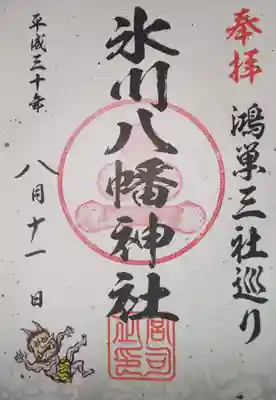 奉拝
鴻巣三社巡り
氷川八幡神社
平成三十年
八月十一日